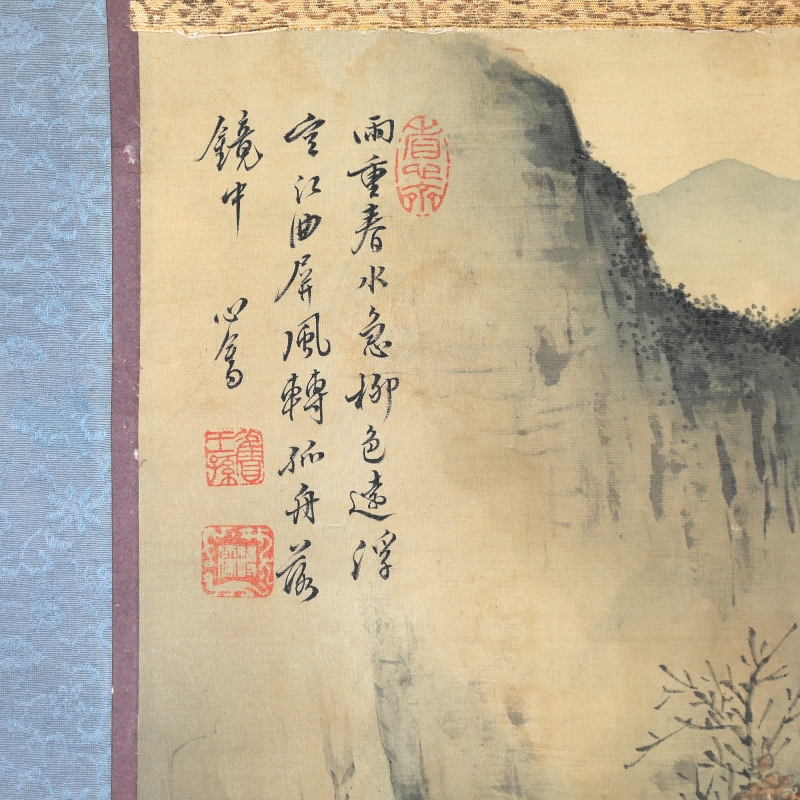 雨重春水急柳色遠浮
空江曲屏風轉孤舟落
鏡中
心畬
舊王孫